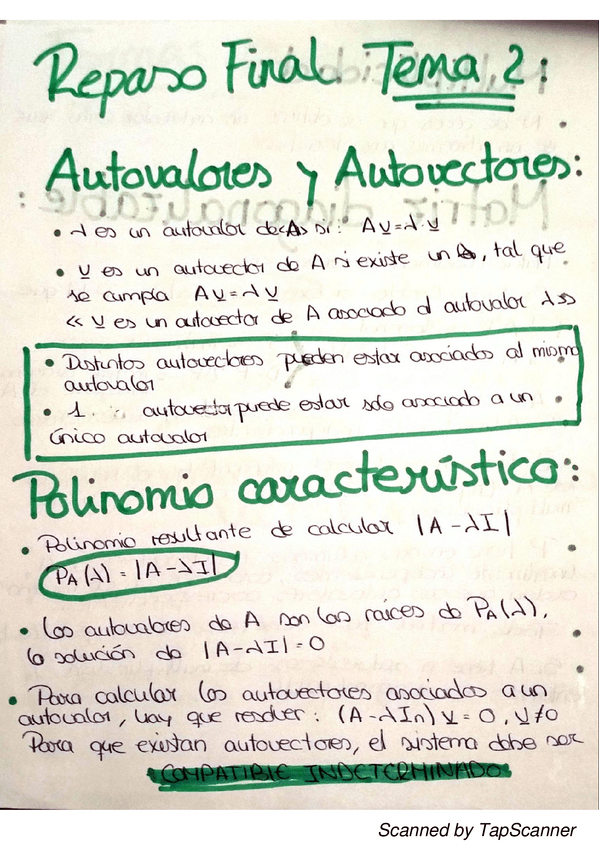 Repaso Final Tema 2:
Autovalores y Autovectores:
• λ es un autovalor de A si: Av = λ·v
• v es un autovector de A si existe un λ, tal que
se cumpla Av = λv
<< v es un autovector de A asociado al autovalor λ >>
• Distintos autovectores pueden estar asociados al mismo
autovalor
• 1 autovector puede estar solo asociado a un
único autovalor
Polinomio característico:
• Polinomio resultante de calcular |A - λI|
PA(λ) = |A - λI|
• Los autovalores de A son las raíces de PA(λ),
la solución de |A - λI| = 0
• Para calcular los autovectores asociados a un
autovalor, hay que resolver: (A - λIn) v = 0, v ≠ 0
Para que existan autovectores, el sistema debe ser
COMPATIBLE INDETERMINADO
Scanned by TapScanner